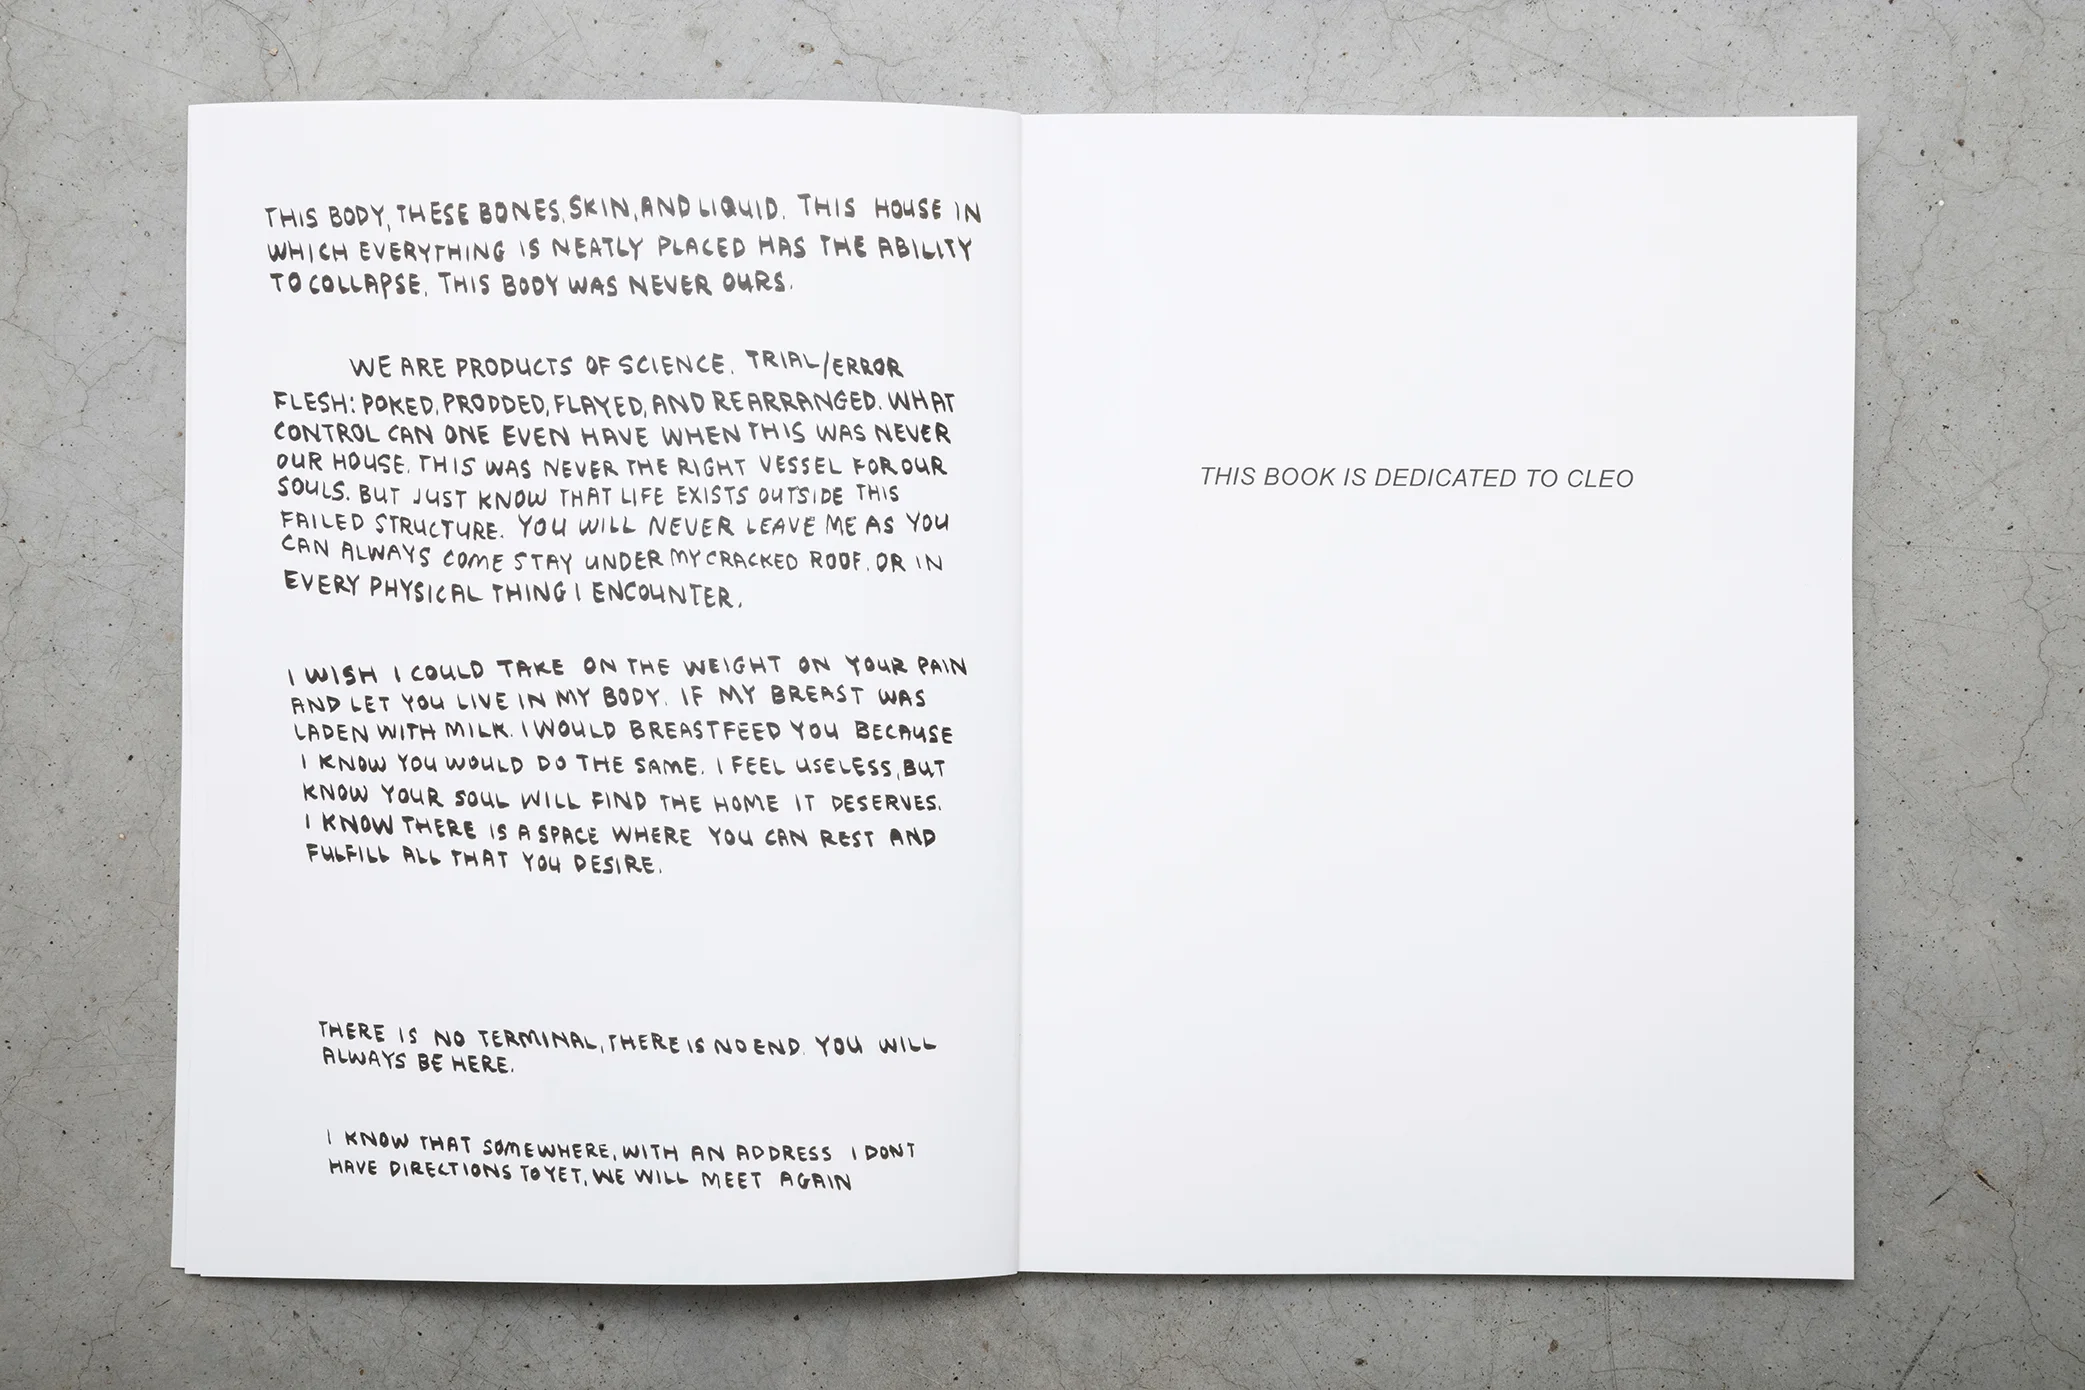 THIS BODY, THESE BONES, SKIN, AND LIQUID. THIS HOUSE IN
WHICH EVERYTHING IS NEATLY PLACED HAS THE ABILITY
TO COLLAPSE. THIS BODY WAS NEVER OURS.
WE ARE PRODUCTS OF SCIENCE. TRIAL/ERROR
FLESH: POKED, PRODDED, FLAYED, AND REARRANGED. WHAT
CONTROL CAN ONE EVEN HAVE WHEN THIS WAS NEVER
OUR HOUSE. THIS WAS NEVER THE RIGHT VESSEL FOR OUR
SOULS. BUT JUST KNOW THAT LIFE EXISTS OUTSIDE THIS
FAILED STRUCTURE. YOU WILL NEVER LEAVE ME AS YOU
CAN ALWAYS COME STAY UNDER MY CRACKED ROOF. OR IN
EVERY PHYSICAL THING I ENCOUNTER.
I WISH I COULD TAKE ON THE WEIGHT ON YOUR PAIN
AND LET YOU LIVE IN MY BODY. IF MY BREAST WAS
LADEN WITH MILK. I WOULD BREASTFEED YOU BECAUSE
I KNOW YOU WOULD DO THE SAME. I FEEL USELESS, BUT
KNOW YOUR SOUL WILL FIND THE HOME IT DESERVES.
I KNOW THERE IS A SPACE WHERE YOU CAN REST AND
FULFILL ALL THAT YOU DESIRE.
THERE IS NO TERMINAL, THERE IS NO END. YOU WILL
ALWAYS BE HERE.
I KNOW THAT SOMEWHERE, WITH AN ADDRESS I DONT
HAVE DIRECTIONS TO YET, WE WILL MEET AGAIN
THIS BOOK IS DEDICATED TO CLEO